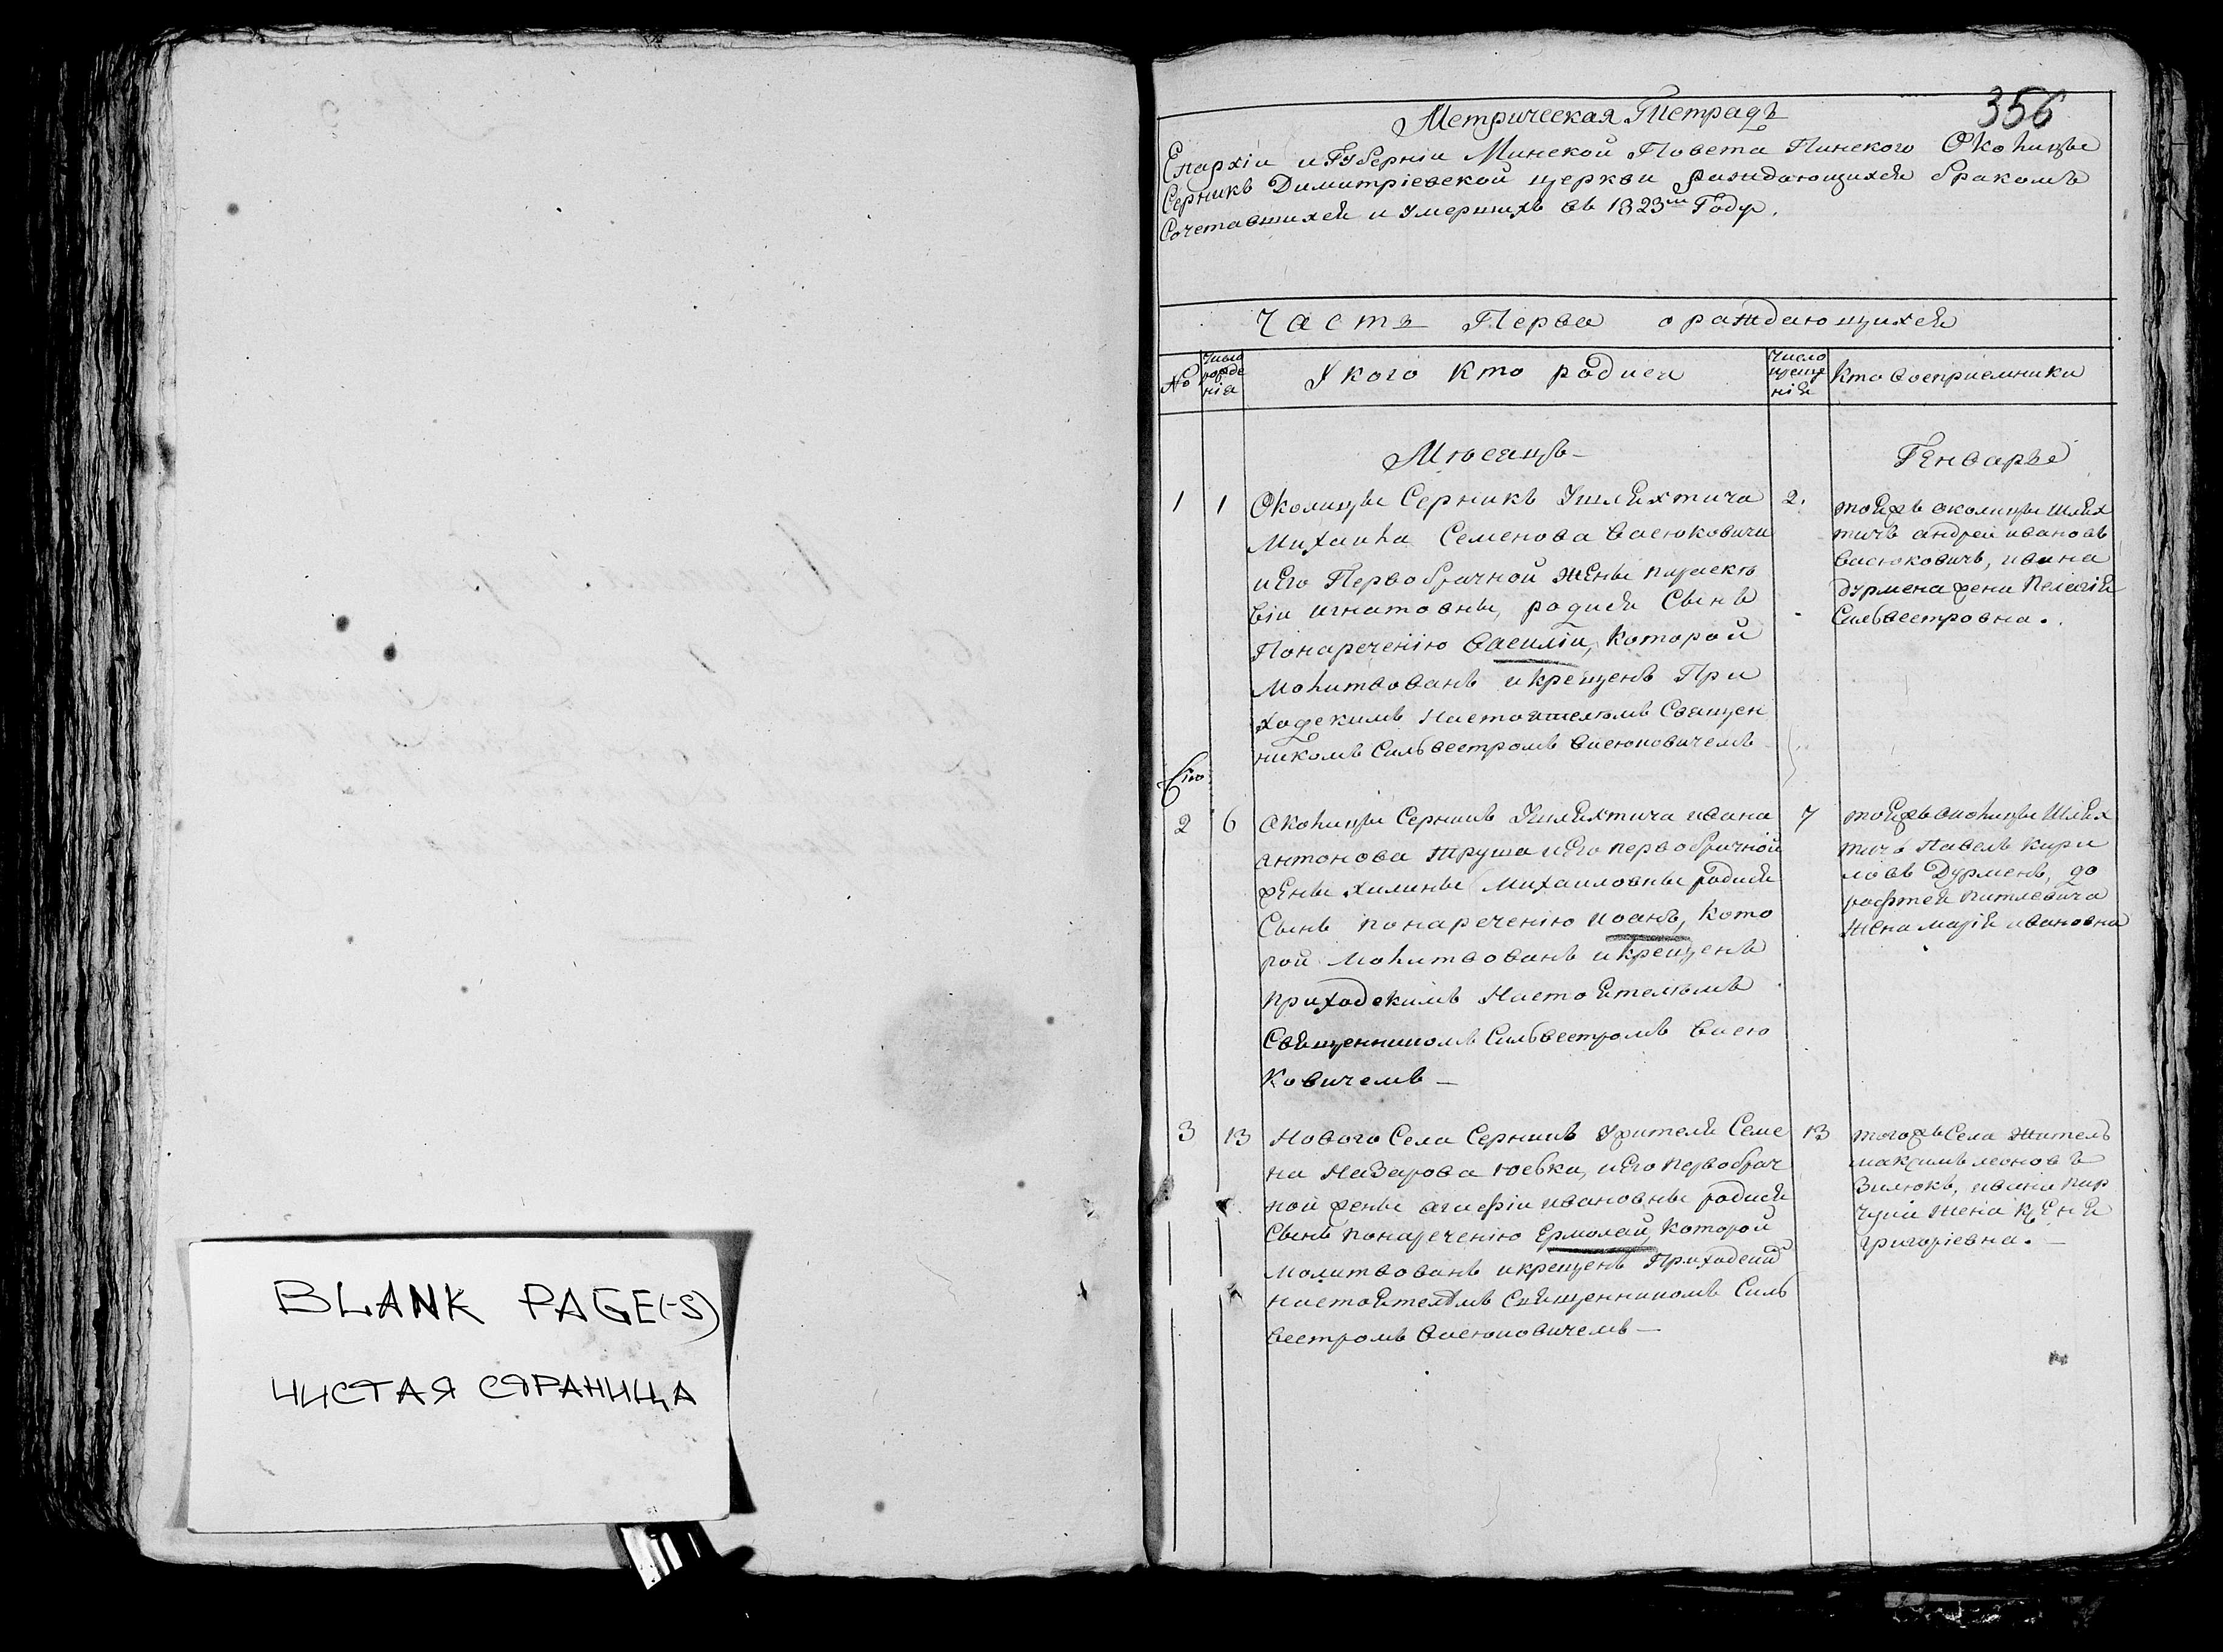 BLANK PAGE(-S)
ЧИСТАЯ СТРАНИЦА
356
Метрическая Тетрадь
Епархіи и Губерніи Минской Повета Пинского Околицы
Серникъ Димитріевской церкви раждающихся бракомъ
Сочетавшихся и Умершихъ въ 1823м Году.
Часть Перва о раждающихся
№
Число рожденія
У кого кто родися
Число крещенія
Кто восприемники
Мѣсяцъ
Генварь
1
1
Околицы Серникъ Ушляхтича
Михаила Семенова Васюковича
и Его Первобрачной жены параске
віи игнатовны, родися Сынъ
Понареченію Василіи, которой
молитвованъ и крещенъ При
ходскимъ Настоятелемъ Священ
никомъ Сильвестромъ Васюковичемъ
2.
тояжъ околицы Шлях
тичъ андрей ивановъ
Васюковичъ, ивана
дурмена жена Пелагія
Сильвестровна.
2
6
околицы Серникъ Ушляхтича ивана
антонова труша и Его первобрачной
жены хилины Михаиловны родися
Сынъ понареченію иоанъ, кото
рой молитвованъ и крещенъ
приходскимъ Настоятелемъ
Священникомъ Сильвестромъ Васю
ковичемъ
7
тояжъ околицы Шлях
тичъ Павелъ кири
ловъ Дурменъ, до
рофтея
жена марія ивановна
3
13
Нового Села Серникъ Ужителя Семе
на Назарова юевка, и Его первобрач
ной жены агафіи ивановны родися
Сынъ понареченію Ермолай, которой
молитвованъ и крещенъ Приходски
настоятелемъ Священникомъ Силь
вестромъ Васюковичемъ
13
тогожъ Села житель
максимъ леоновъ
Зилюкъ, ивана
жена
григоріевна.